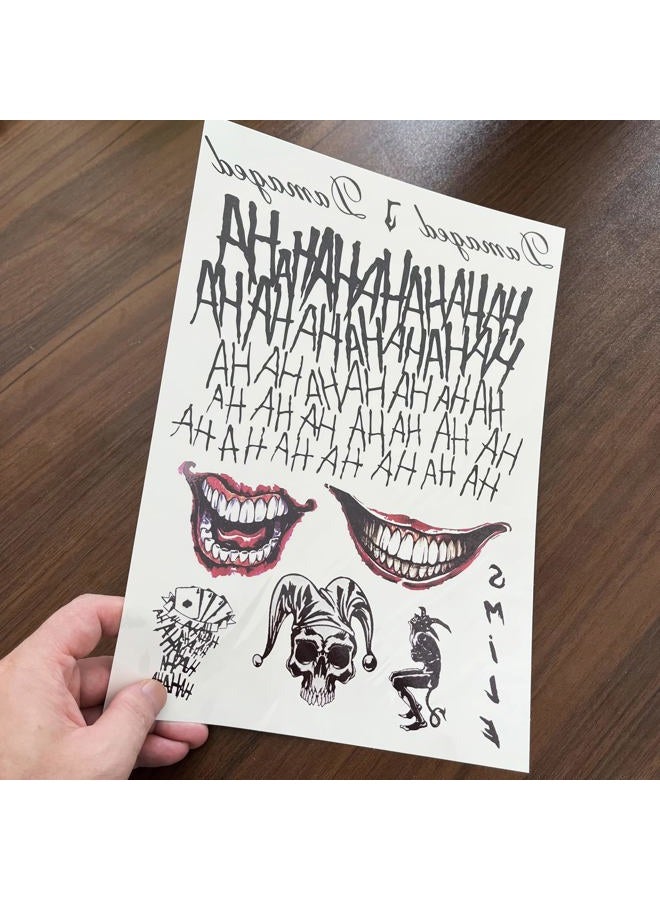 Damaged Damaged J Damaged Damaged
AH AH AH AH AH AH AH
AH AH AH AH AH AH AH
AH AH AH AH AH AH AH
AH AH AH AH AH AH AH
AH AH AH AH AH AH AH
SMILE
AHAHAH